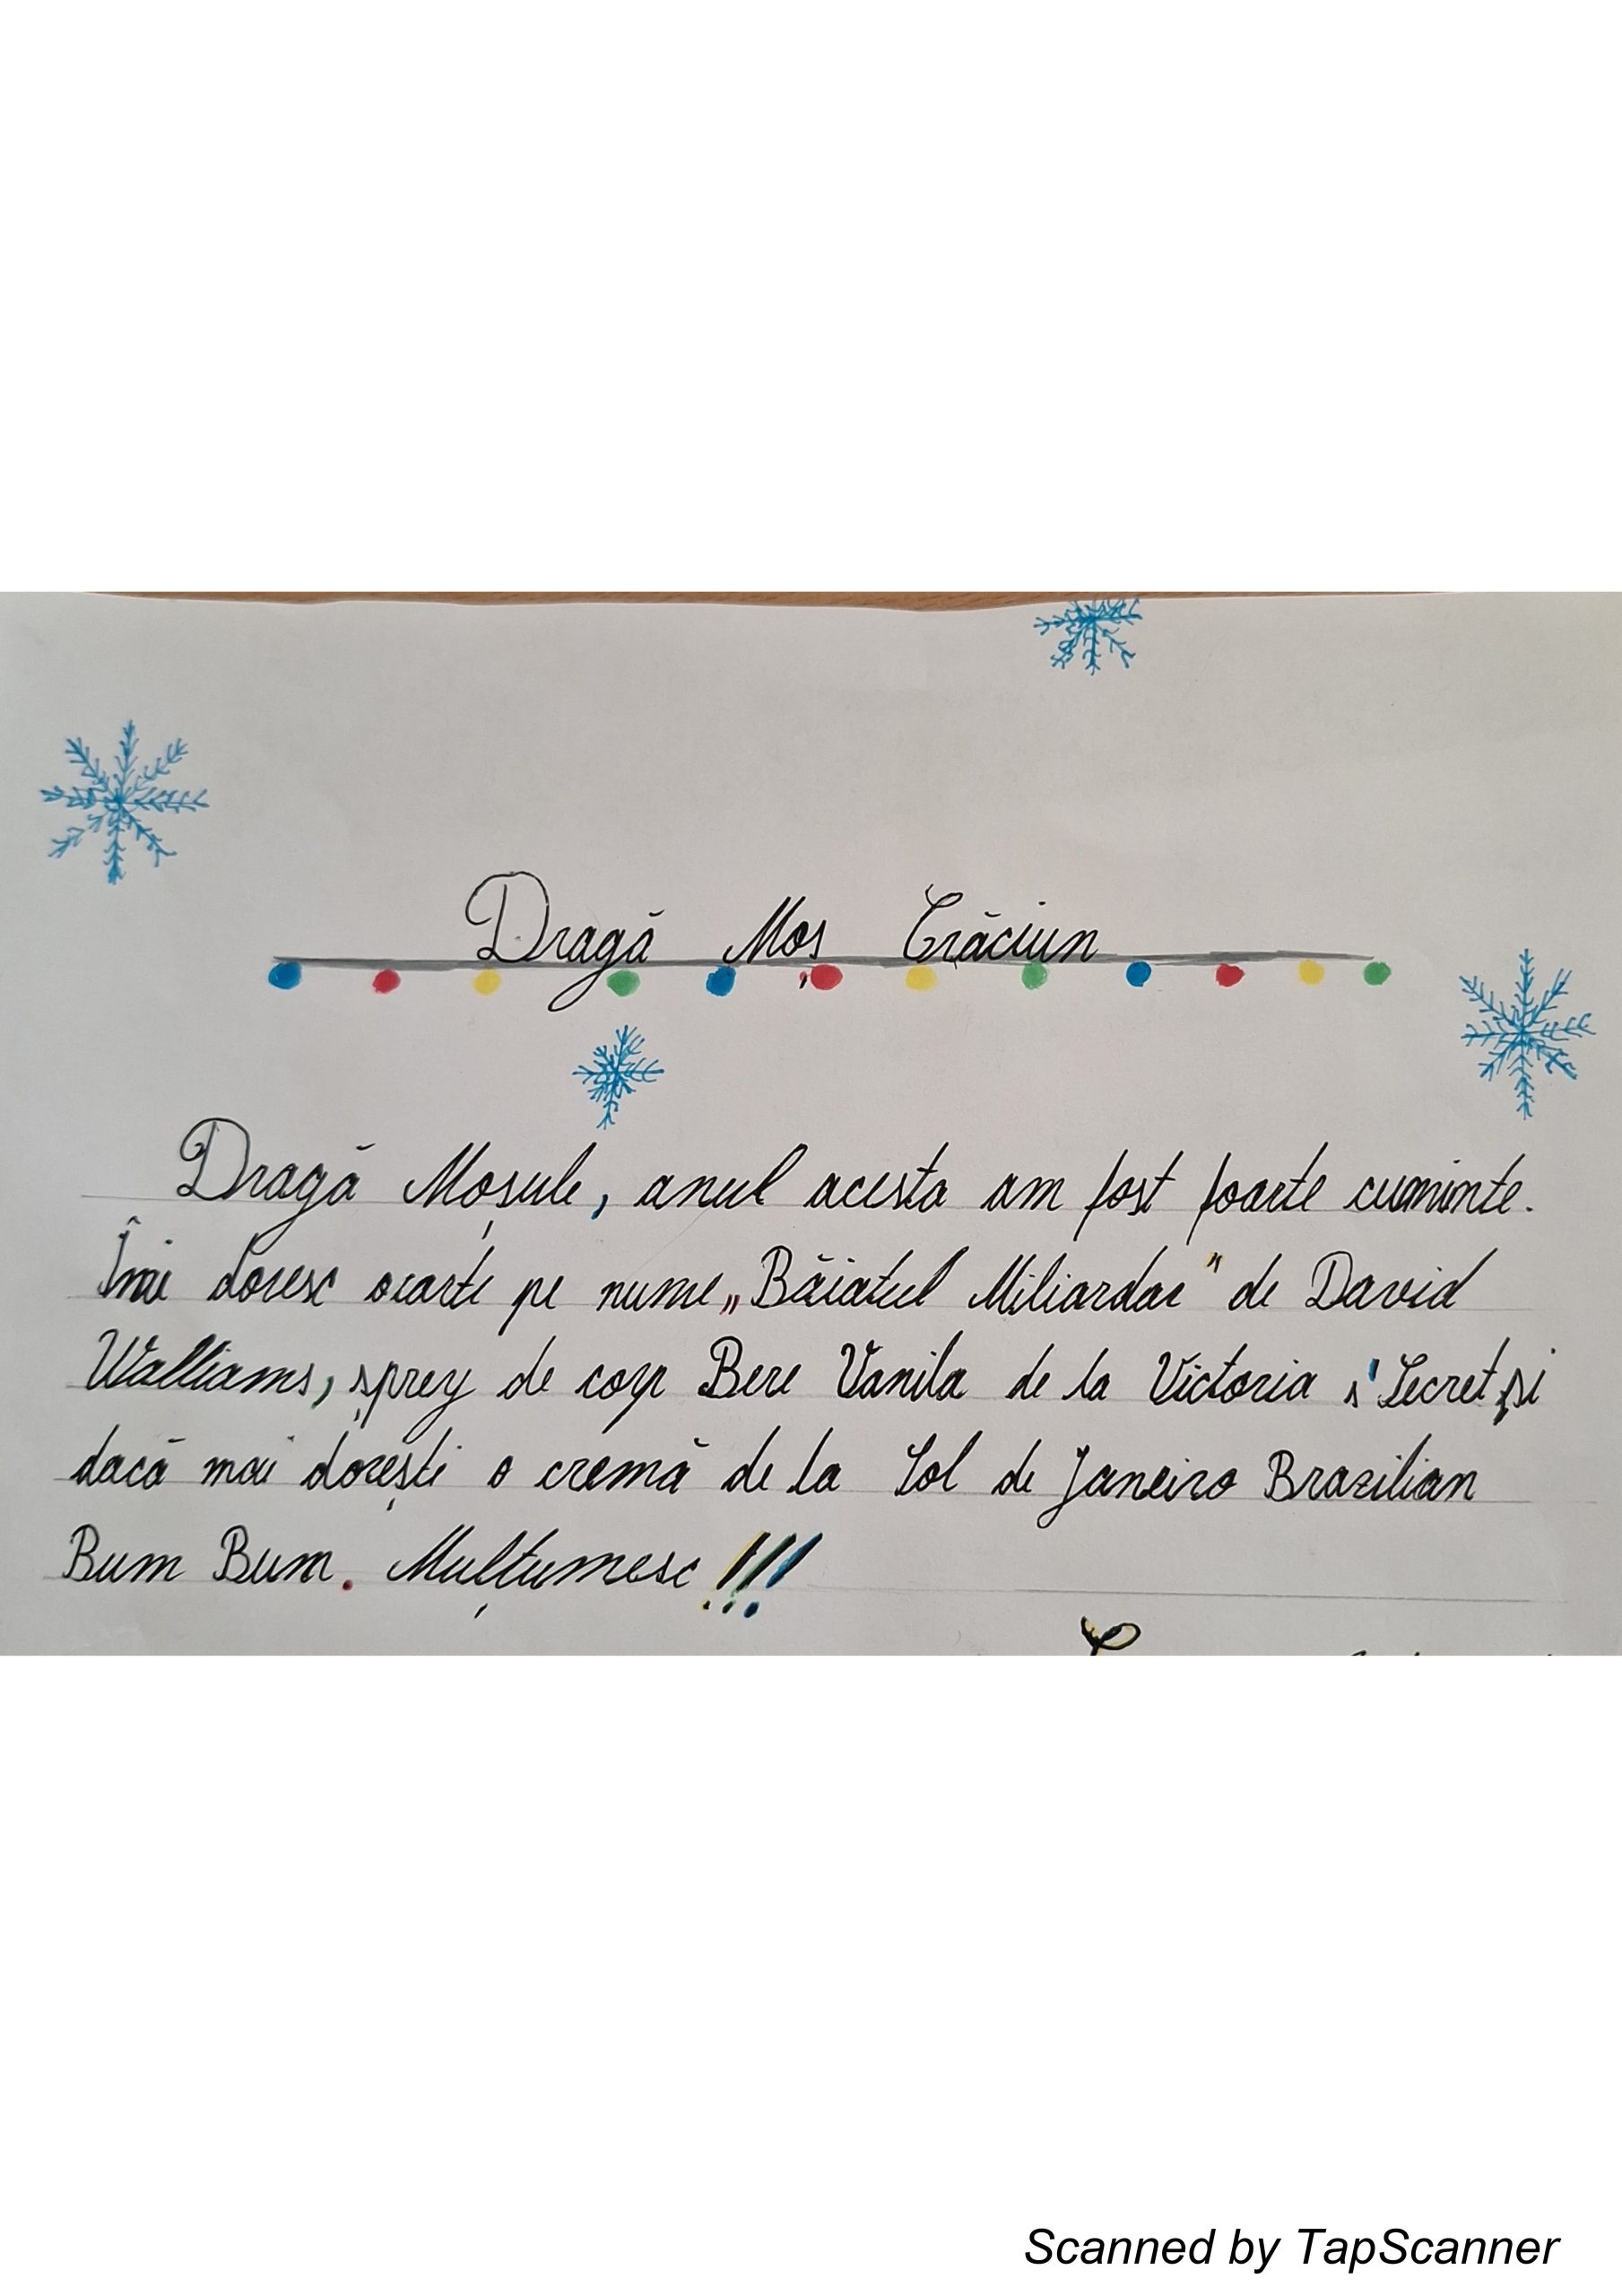 Dragă Moș Crăciun
Dragă Moșule, anul acesta am fost foarte cuminte.
Îmi doresc o carte pe nume „Băiatul Miliardar" de David
Walliams, șprey de corp Bere Vanila de la Victoria s' Secret și
dacă mai dorești o cremă de la Sol de Janeiro Brazilian
Bum Bum. Mulțumesc!!!
Scanned by TapScanner